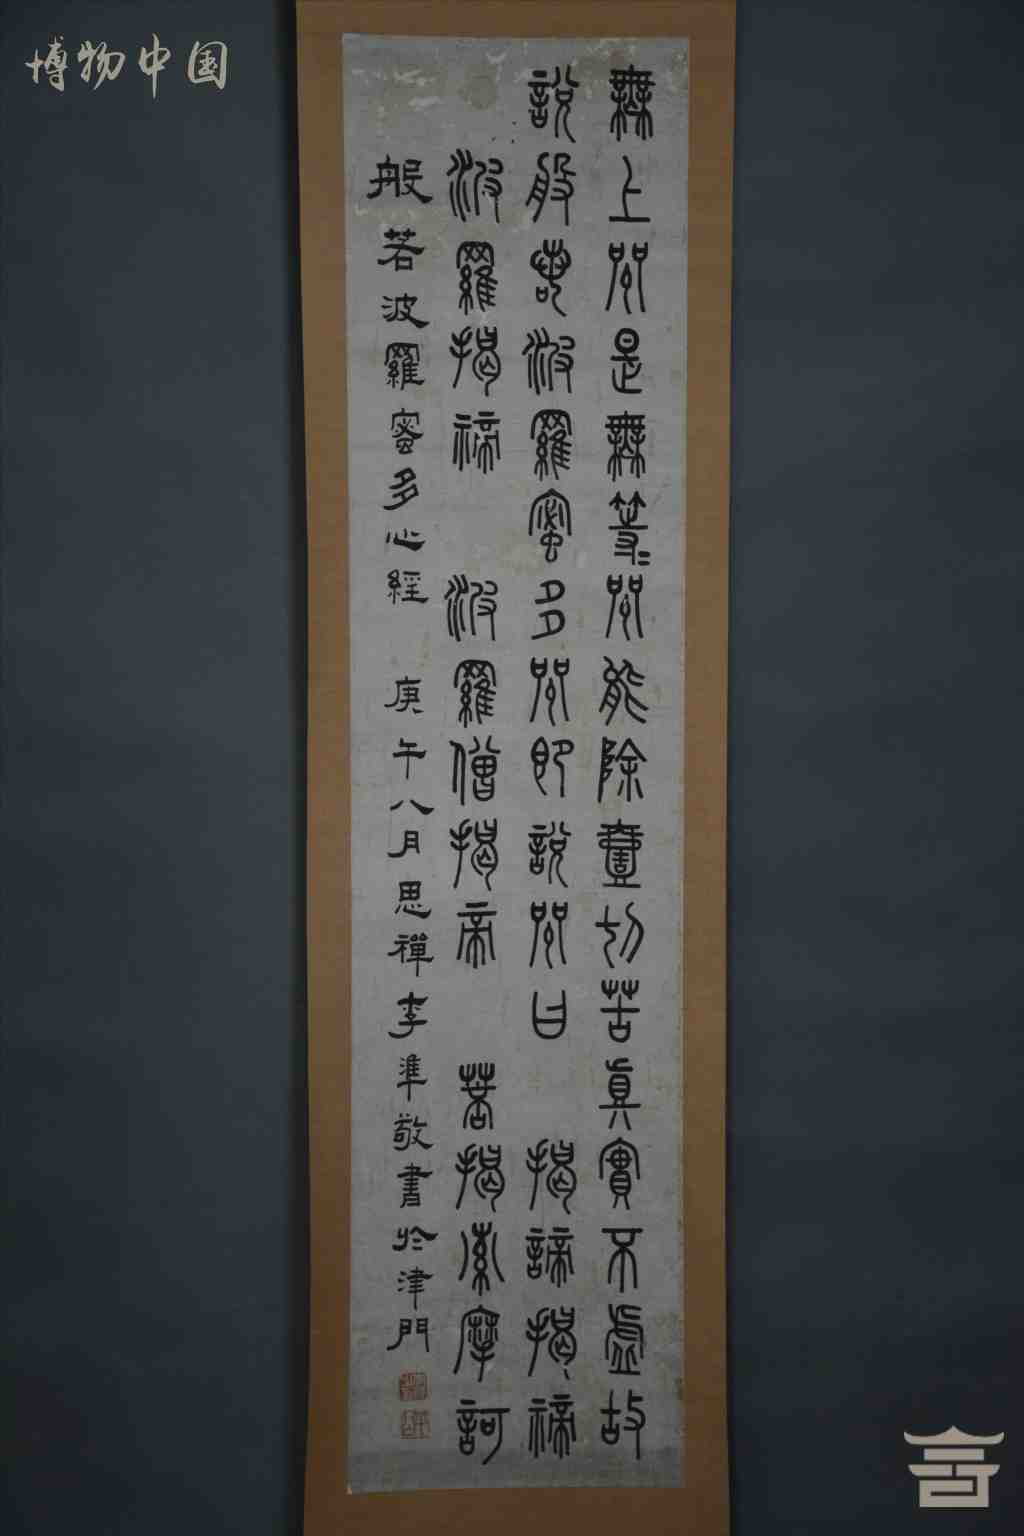 博物中国
無上咒是無等〻咒能除壹切苦真實不虛故
說般若波羅蜜多咒即說咒曰 揭諦揭禘
波羅揭禘 波羅僧揭帝 菩揭素摩訶
般若波羅蜜多心經 庚午八月思禪李準敬書於津門